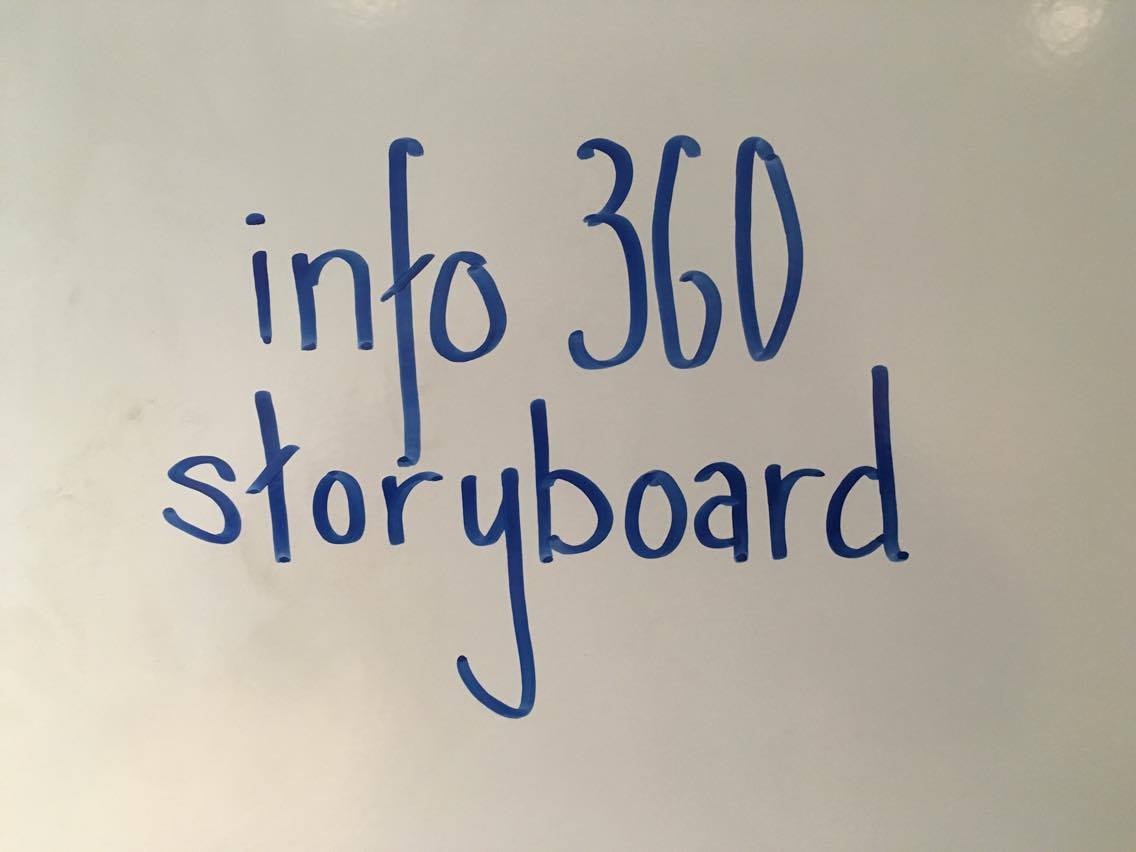 info 360
storyboard